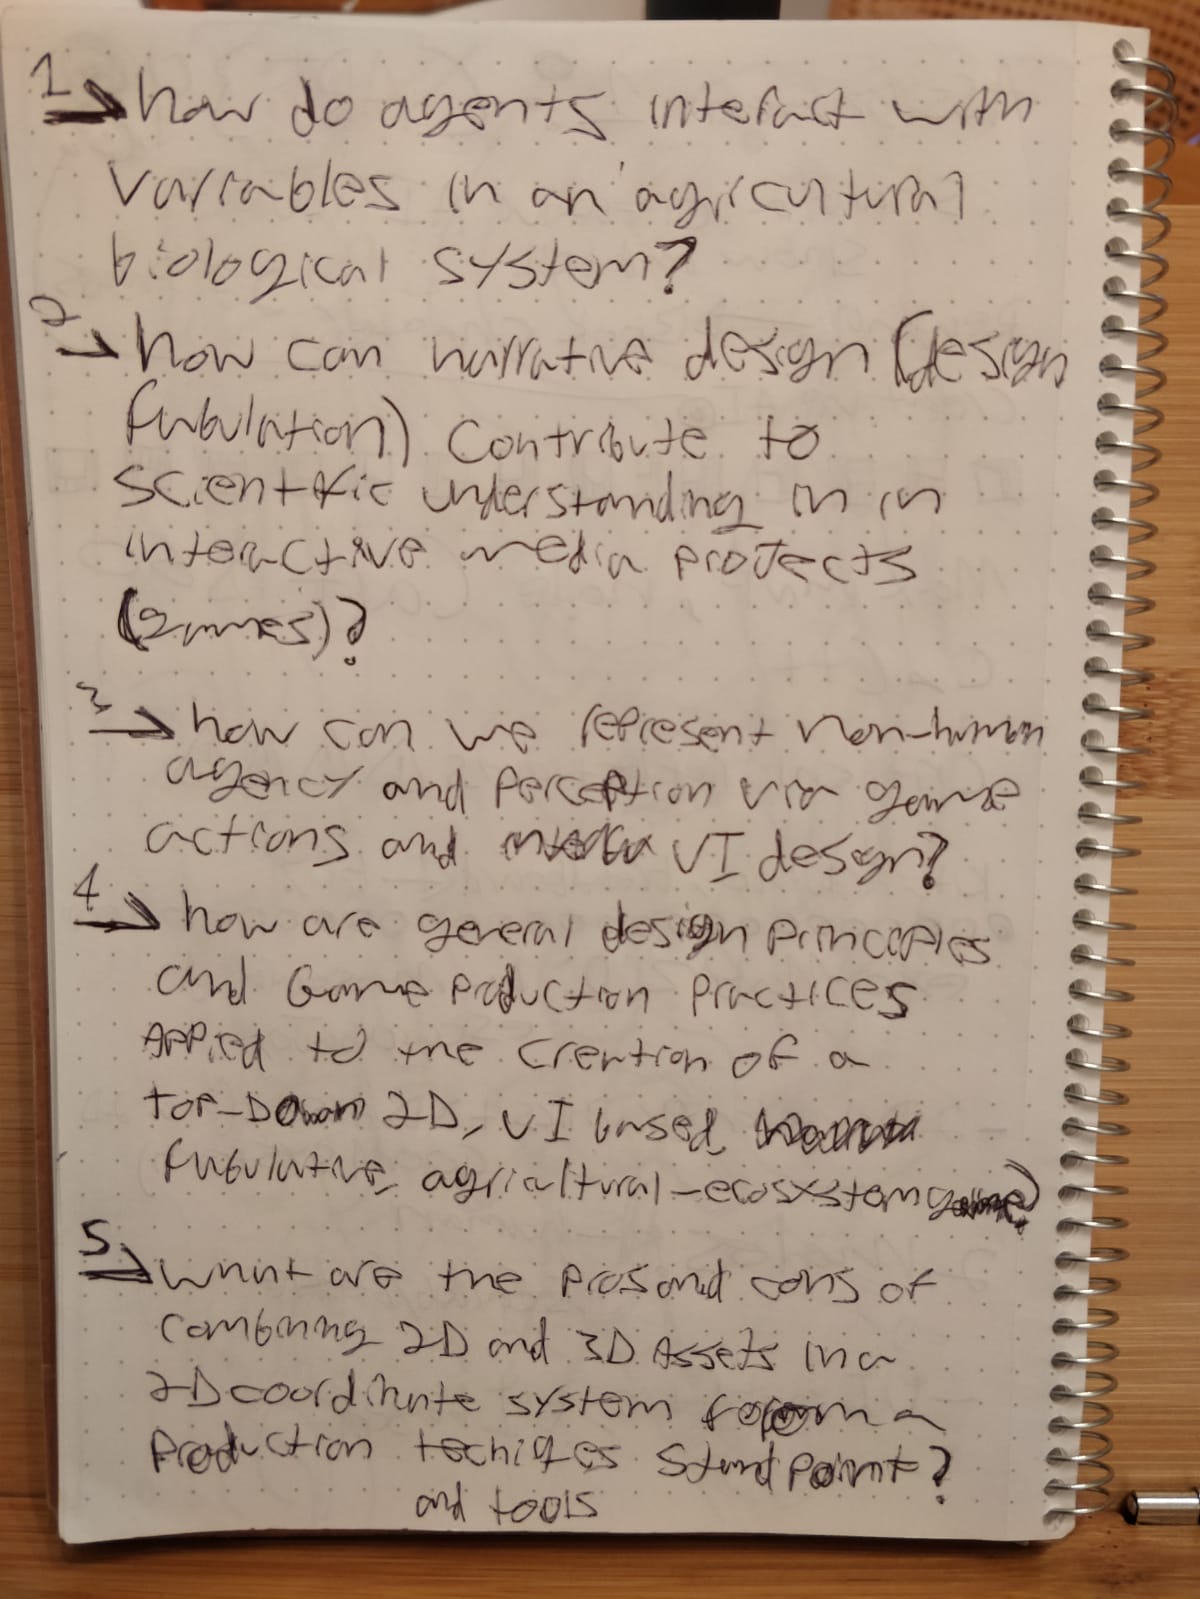 1 → how do agents interact with
variables in an agricultural
biological system?
2 → how can narrative design (design
fabulation) contribute to
scientific understanding in in
interactive media projects
(games)?
3 → how can we represent non-human
agency and perception via game
actions and UI design?
4 → how are general design principles
and Game production practices
Applied to the creation of a
top-Down 2D, UI based
fabulative, agricultural-ecosystem game?
5 → What are the pros and cons of
combining 2D and 3D Assets in a
2D coordinate system from a
production techiqes standpoint?
and tools